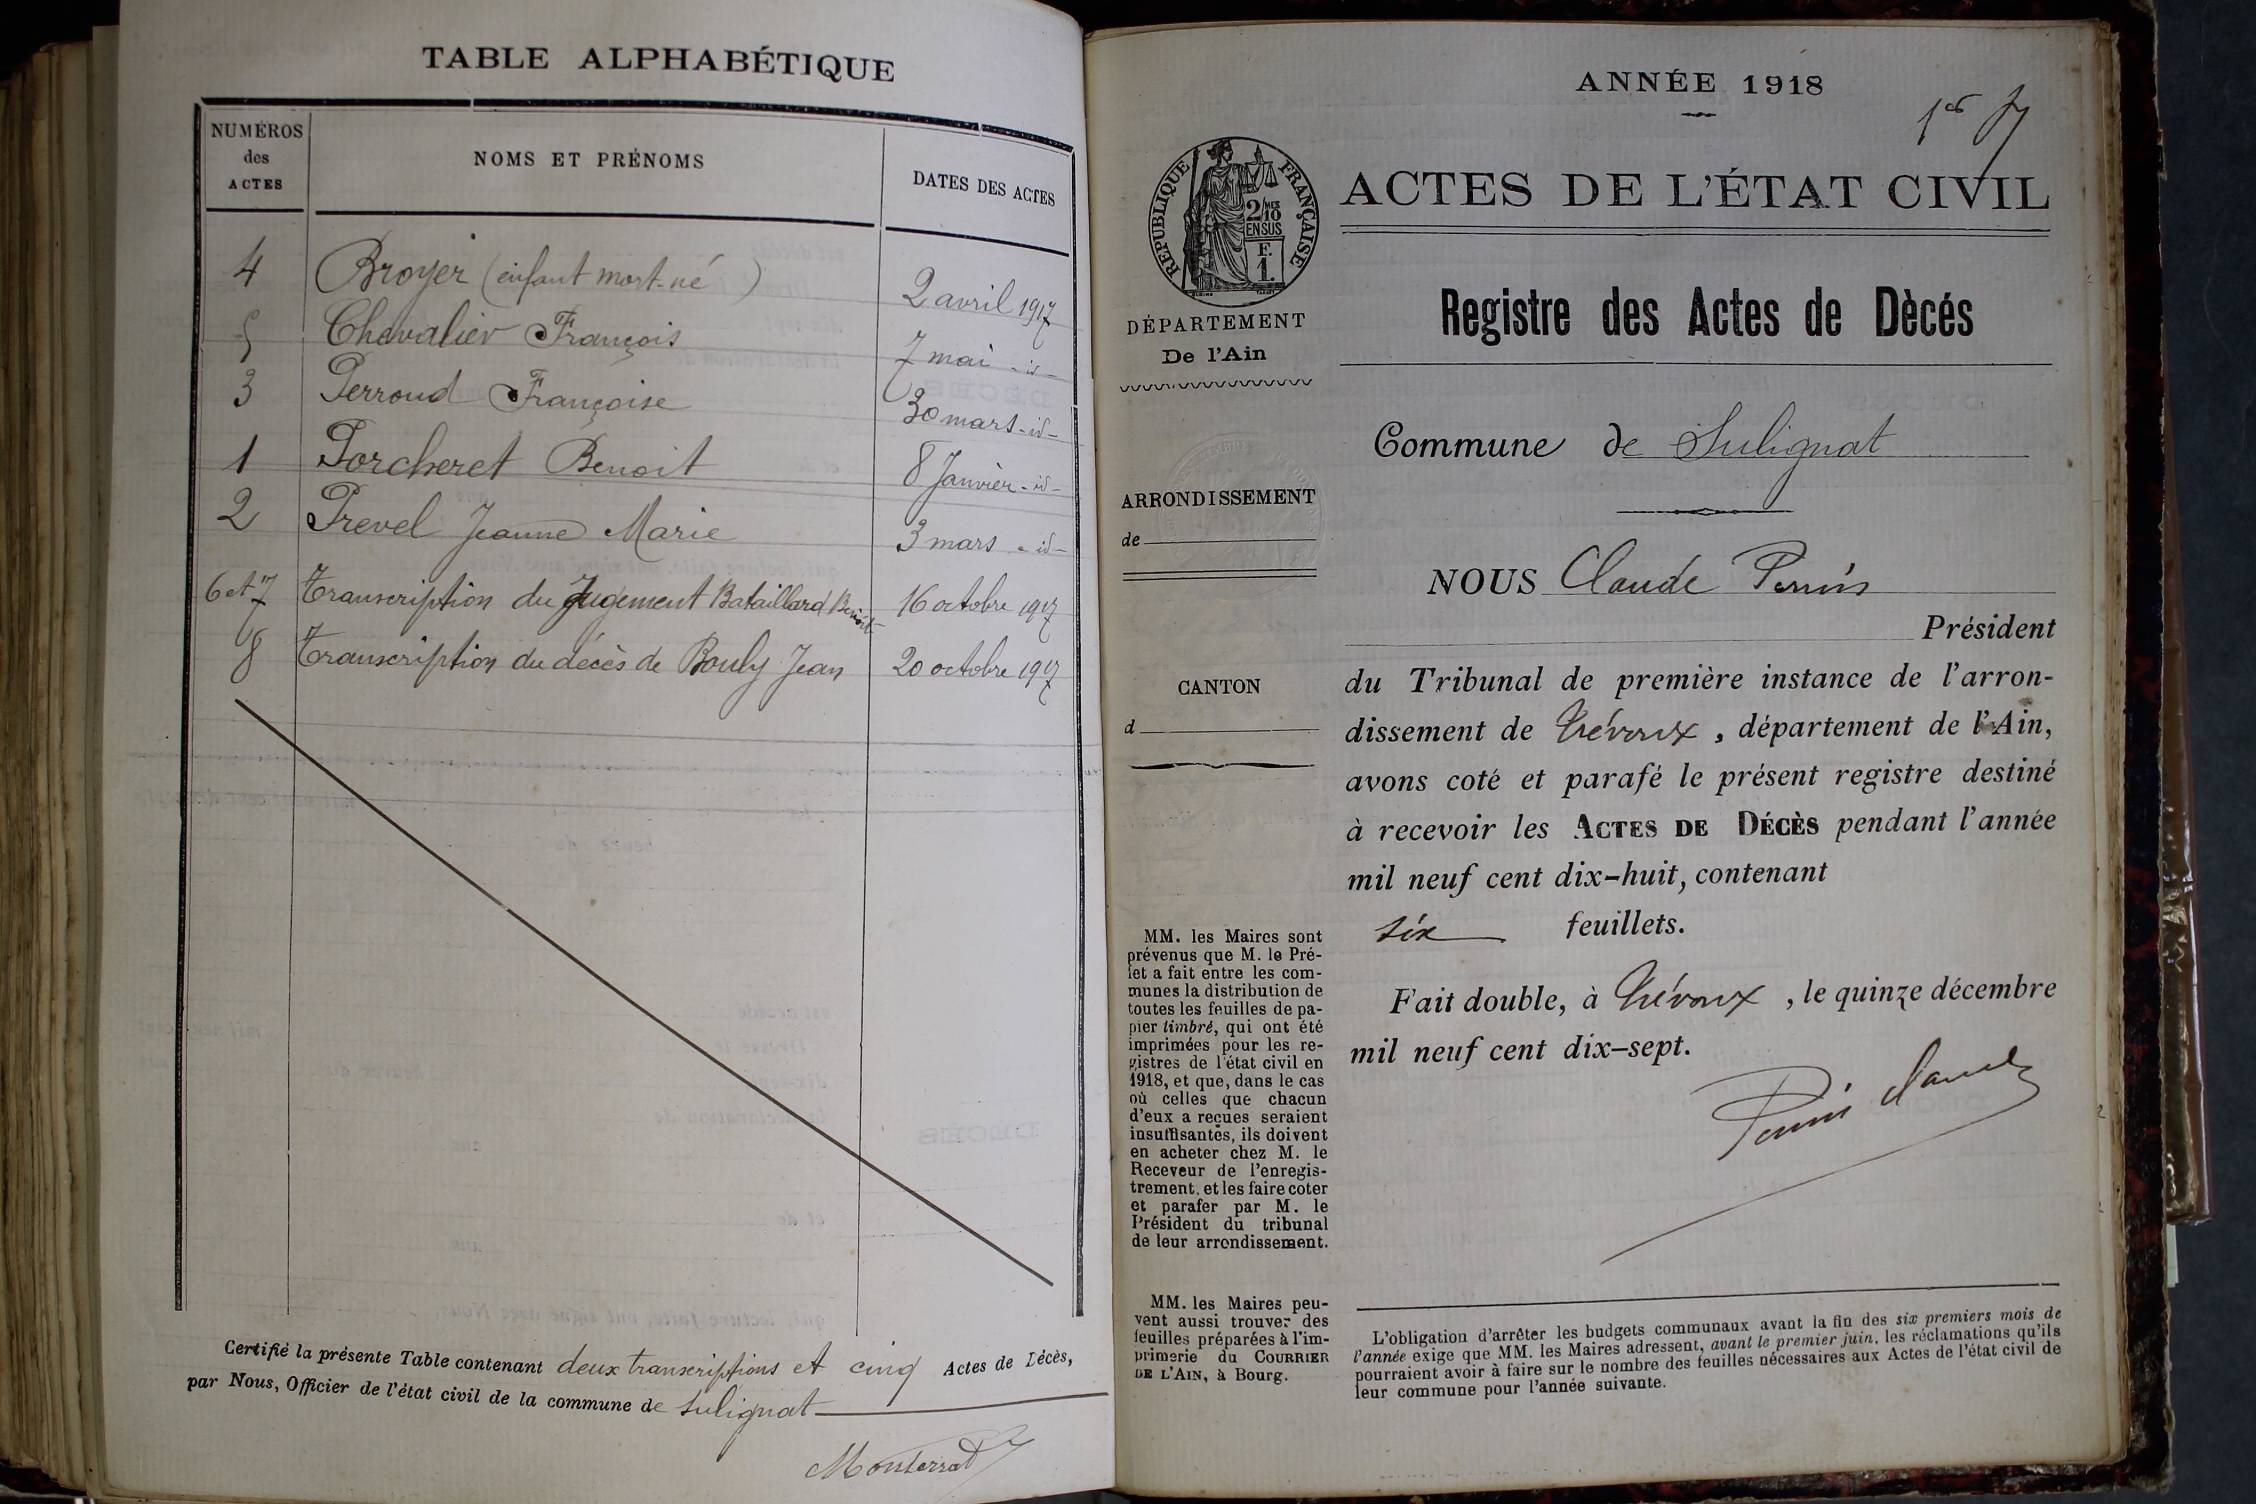 TABLE ALPHABÉTIQUE
NUMÉROS
des
ACTES
NOMS ET PRÉNOMS
DATES DES ACTES
4 Broyer (enfant mort-né) 2 avril 1917
5 Chevalier François 7 mai -id-
3 Perroud Françoise 30 mars -id-
1 Porcheret Benoit 8 Janvier -id-
2 Prevel Jeanne Marie 3 mars -id-
6 et 7 Transcription du Jugement Bataillard Benoit 16 octobre 1917
8 Transcription du décès de Bouly Jean 20 octobre 1917
Certifié la présente Table contenant deux transcriptions et cinq Actes de Décès,
par Nous, Officier de l'état civil de la commune de Sulignat
Monterrat
ANNÉE 1918
1er
ACTES DE L'ÉTAT CIVIL
RÉPUBLIQUE FRANÇAISE
2/10 MES
EN SUS
F.
1.
DÉPARTEMENT
De l'Ain
Registre des Actes de Dècés
Commune de Sulignat
ARRONDISSEMENT
de
CANTON
d
NOUS Claude Perrin
Président
du Tribunal de première instance de l'arron-
dissement de Trévoux, département de l'Ain,
avons coté et parafé le présent registre destiné
à recevoir les ACTES DE DÉCÈS pendant l'année
mil neuf cent dix-huit, contenant
six feuillets.
Fait double, à Trévoux, le quinze décembre
mil neuf cent dix-sept.
Perrin Claude
MM. les Maires sont
prévenus que M. le Pré-
fet a fait entre les com-
munes la distribution de
toutes les feuilles de pa-
pier timbré, qui ont été
imprimées pour les re-
gistres de l'état civil en
1918, et que, dans le cas
où celles que chacun
d'eux a reçues seraient
insuffisantes, ils doivent
en acheter chez M. le
Receveur de l'enregis-
trement, et les faire coter
et parafer par M. le
Président du tribunal
de leur arrondissement.
MM. les Maires peu-
vent aussi trouver des
feuilles préparées à l'im-
primerie du COURRIER
DE L'AIN, à Bourg.
L'obligation d'arrêter les budgets communaux avant la fin des six premiers mois de
l'année exige que MM. les Maires adressent, avant le premier juin, les réclamations qu'ils
pourraient avoir à faire sur le nombre des feuilles nécessaires aux Actes de l'état civil de
leur commune pour l'année suivante.